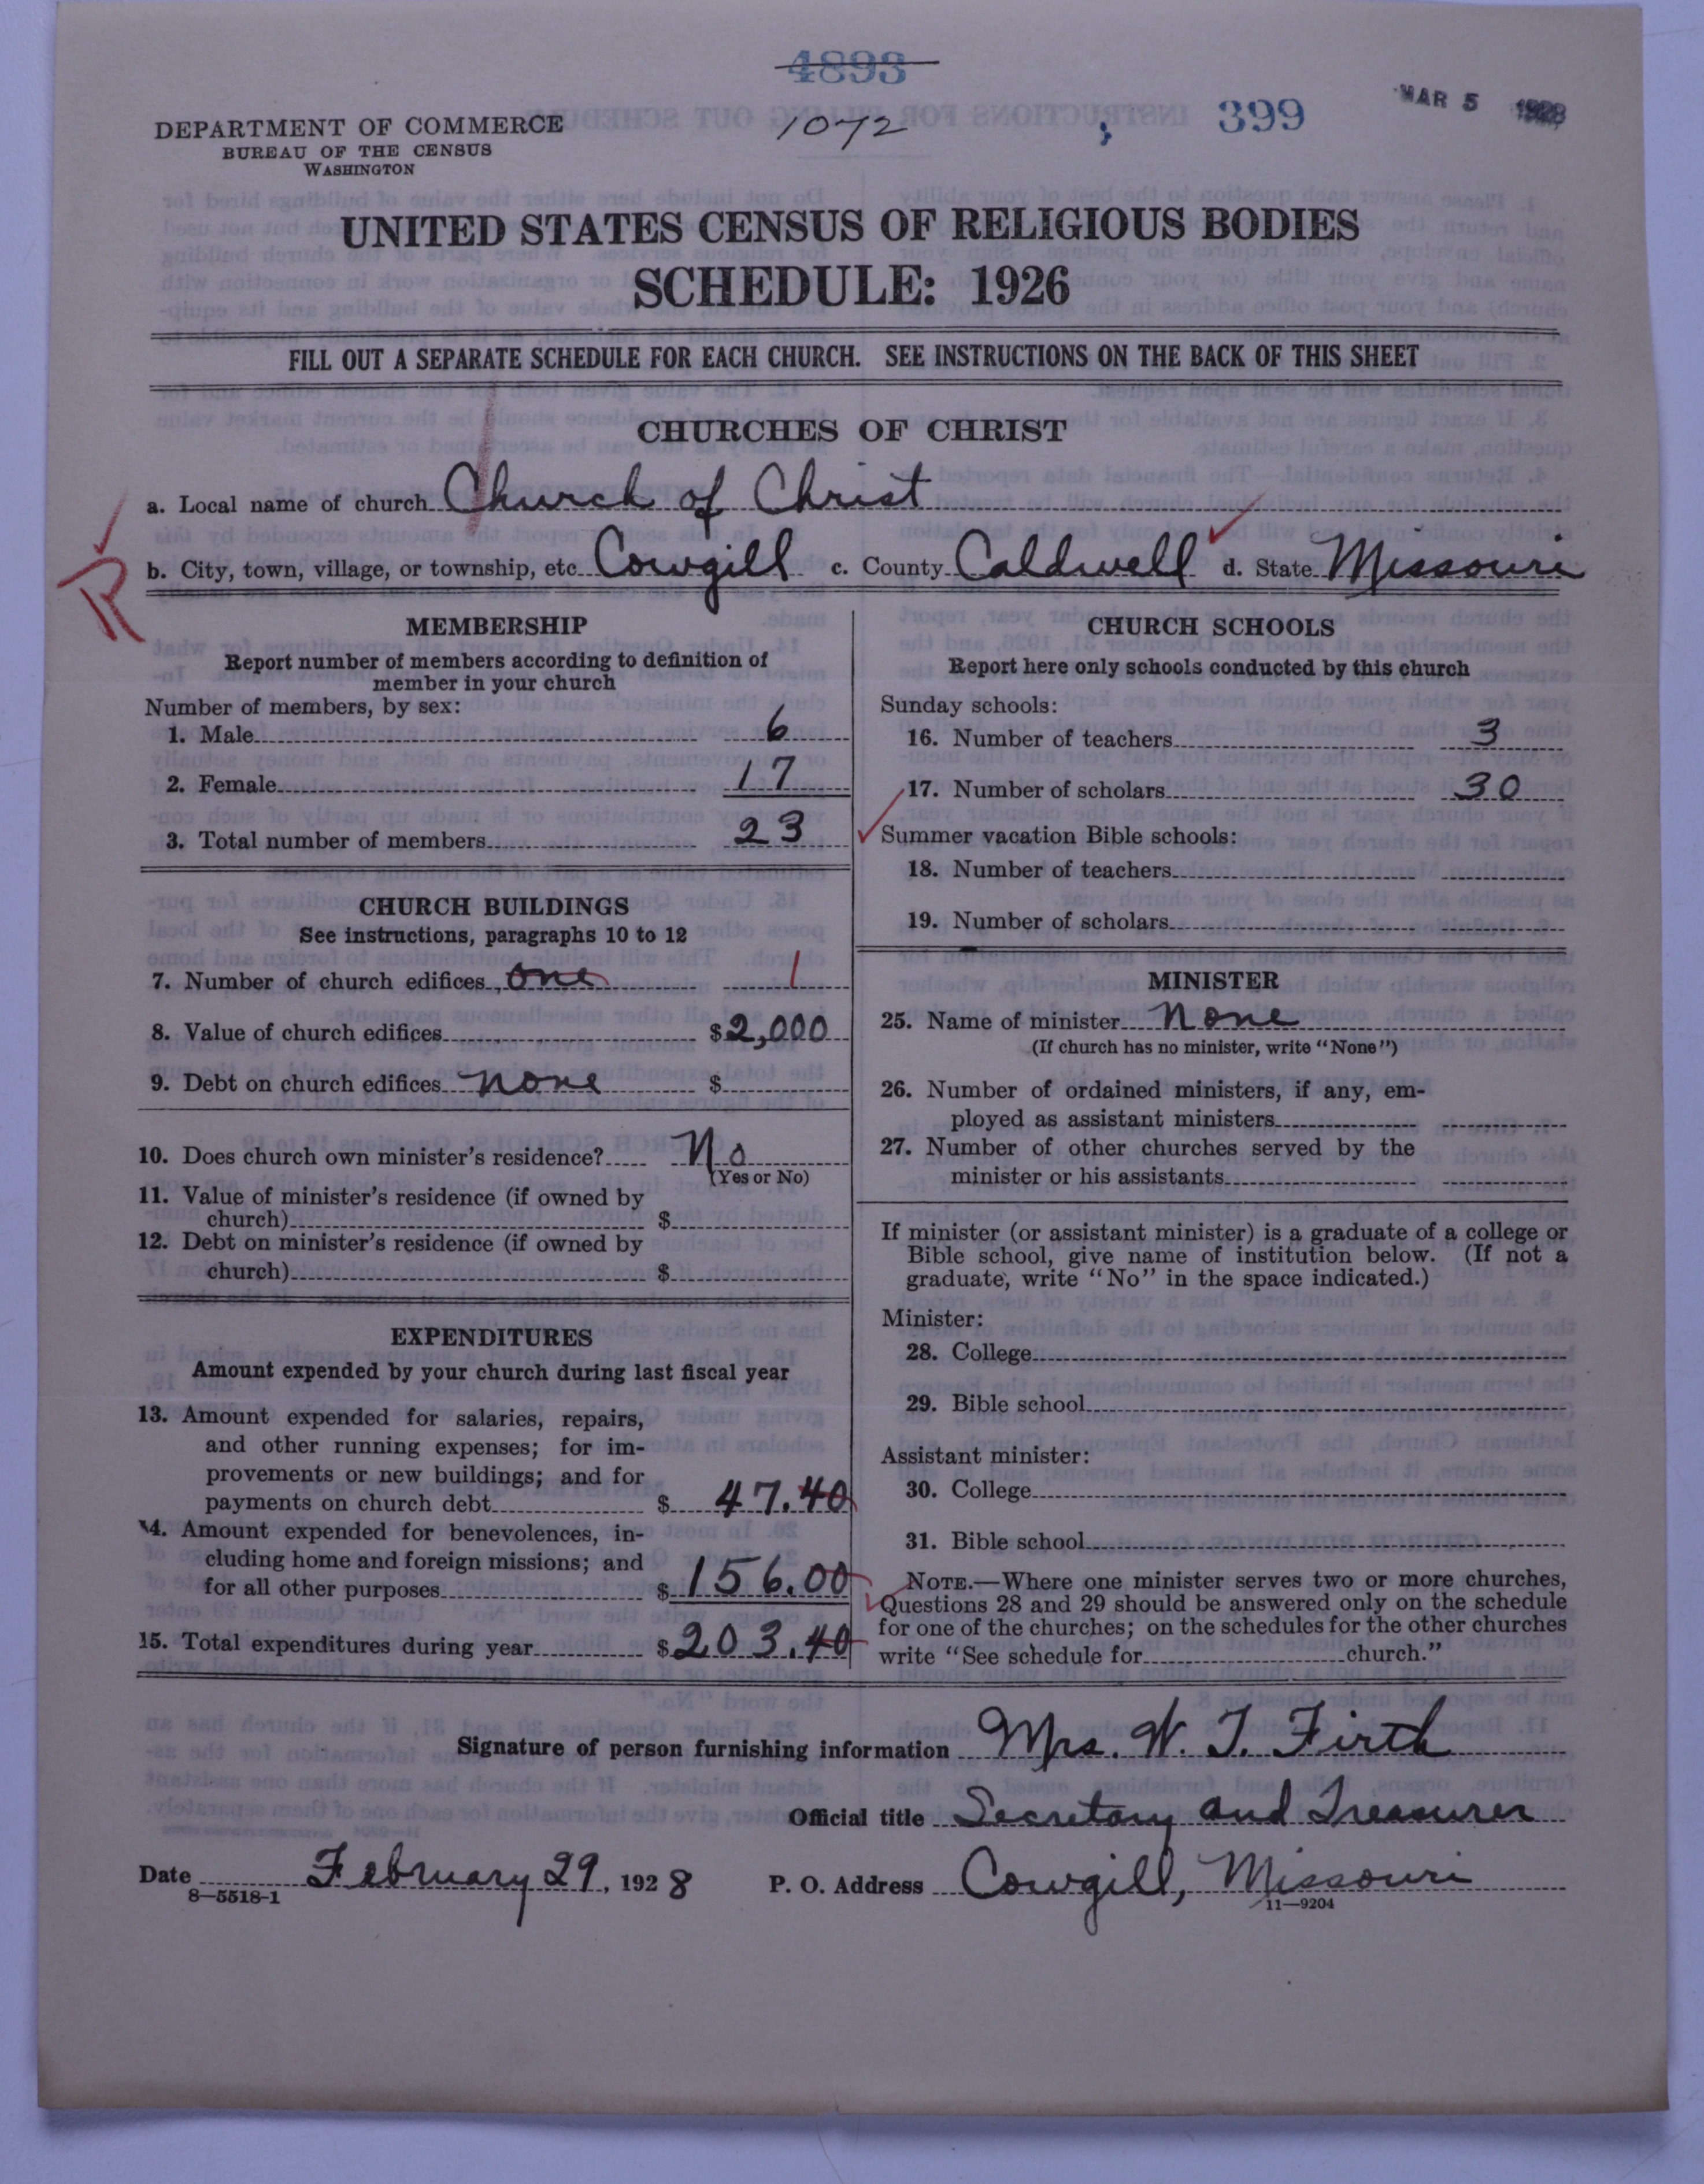 4893
MAR 5 1928
399
1072
DEPARTMENT OF COMMERCE
BUREAU OF THE CENSUS
WASHINGTON
UNITED STATES CENSUS OF RELIGIOUS BODIES
SCHEDULE: 1926
FILL OUT A SEPARATE SCHEDULE FOR EACH CHURCH. SEE INSTRUCTIONS ON THE BACK OF THIS SHEET
CHURCHES OF CHRIST
a. Local name of church Church of Christ
b. City, town, village, or township, etc. Cowgill c. County Caldwell d. State Missouri
R
MEMBERSHIP
Report number of members according to definition of
member in your church
Number of members, by sex:
1. Male 6
2. Female 17
3. Total number of members 23
CHURCH BUILDINGS
See instructions, paragraphs 10 to 12
7. Number of church edifices one 1
8. Value of church edifices $2,000
9. Debt on church edifices none $
10. Does church own minister's residence? No
(Yes or No)
11. Value of minister's residence (if owned by
church) $
12. Debt on minister's residence (if owned by
church) $
EXPENDITURES
Amount expended by your church during last fiscal year
13. Amount expended for salaries, repairs,
and other running expenses; for im-
provements or new buildings; and for
payments on church debt $ 47.40
14. Amount expended for benevolences, in-
cluding home and foreign missions; and
for all other purposes $ 156.00
15. Total expenditures during year $ 203.40
CHURCH SCHOOLS
Report here only schools conducted by this church
Sunday schools:
16. Number of teachers 3
17. Number of scholars 30
Summer vacation Bible schools:
18. Number of teachers
19. Number of scholars
MINISTER
25. Name of minister None
(If church has no minister, write "None")
26. Number of ordained ministers, if any, em-
ployed as assistant ministers
27. Number of other churches served by the
minister or his assistants
If minister (or assistant minister) is a graduate of a college or
Bible school, give name of institution below. (If not a
graduate, write "No" in the space indicated.)
Minister:
28. College
29. Bible school
Assistant minister:
30. College
31. Bible school
NOTE.—Where one minister serves two or more churches,
Questions 28 and 29 should be answered only on the schedule
for one of the churches; on the schedules for the other churches
write "See schedule for church."
Signature of person furnishing information Mrs. W. T. Firth
Official title Secretary and Treasurer
Date February 29, 1928 P. O. Address Cowgill, Missouri
8—5518-1
11—9204